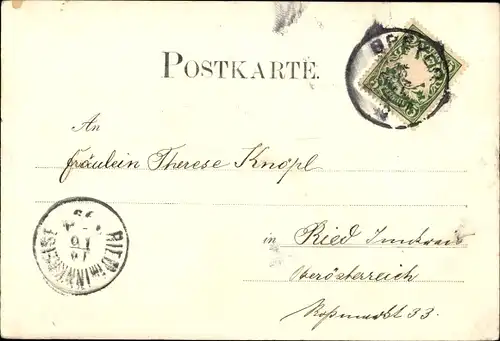 POSTKARTE.
An
Fräulein Therese Knöpl
in Ried Innkreis
Oberösterreich
Roßmarkt 33.
RIED IM INNKREISE